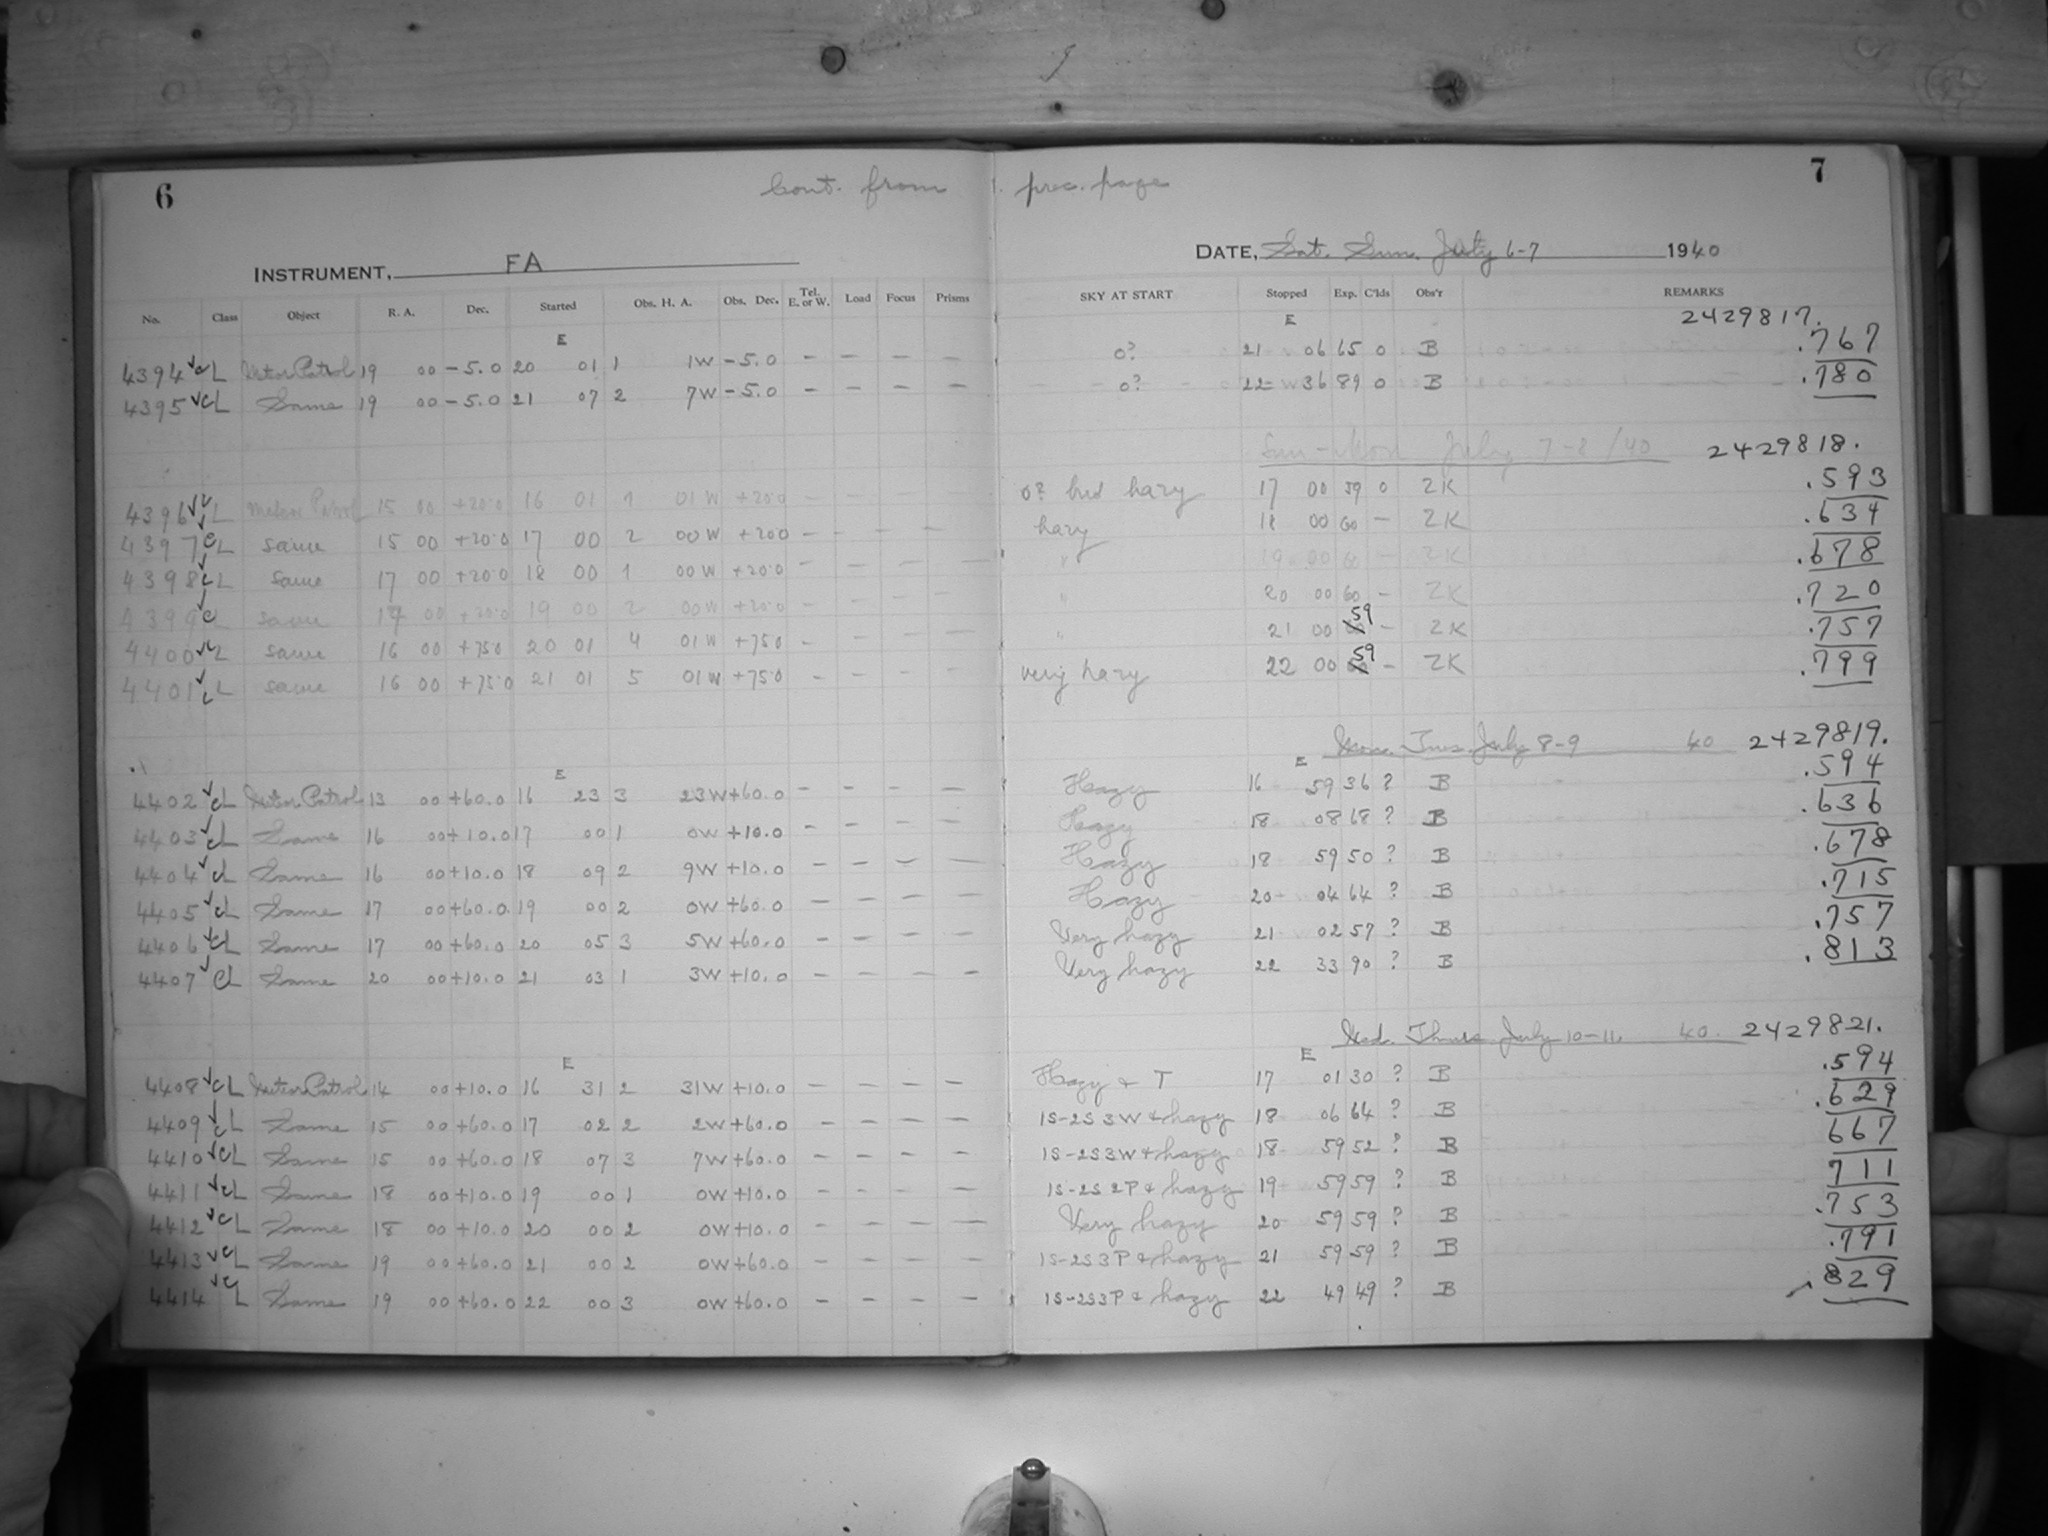 6 Cont. from prec. page 7
INSTRUMENT, FA DATE, Sat. Sun. July 6-7 1940
No. Class Object R. A. Dec. Started Obs. H. A. Obs. Dec. Tel. E. or W. Load Focus Prisms SKY AT START Stopped Exp. C'lds Obs'r REMARKS
E E 2429817.
4394 ✓ CL Meteor Patrol 19 00 -5.0 20 01 1 1W -5.0 - - - - 0? 21 06 65 0 B .767
4395 ✓ CL Same 19 00 -5.0 21 07 2 7W -5.0 - - - - 0? 22 36 89 0 B .780
Sun-Mon July 7-8/40 2429818.
4396 ✓ CL Meteor Patrol 15 00 +20.0 16 01 1 01W +20.0 - - - - 0? but hazy 17 00 59 0 ZK .593
4397 ✓ CL same 15 00 +20.0 17 00 2 00W +20.0 - - - - hazy 18 00 60 - ZK .634
4398 ✓ CL same 17 00 +20.0 18 00 1 00W +20.0 - - - - " 19 00 60 - ZK .678
4399 ✓ CL same 17 00 +20.0 19 00 2 00W +20.0 - - - - " 20 00 60 - ZK .720
4400 ✓ CL same 16 00 +75.0 20 01 4 01W +75.0 - - - - " 21 00 59 - ZK .757
4401 ✓ CL same 16 00 +75.0 21 01 5 01W +75.0 - - - - very hazy 22 00 59 - ZK .799
Mon. Tues. July 8-9 40 2429819.
E E
4402 ✓ CL Meteor Patrol 13 00 +60.0 16 23 3 23W +60.0 - - - - Hazy 16 59 36 ? B .594
4403 ✓ CL Same 16 00 +10.0 17 00 1 0W +10.0 - - - - Hazy 18 08 68 ? B .636
4404 ✓ CL Same 16 00 +10.0 18 09 2 9W +10.0 - - - - Hazy 18 59 50 ? B .678
4405 ✓ CL Same 17 00 +60.0 19 00 2 0W +60.0 - - - - Hazy 20 04 64 ? B .715
4406 ✓ CL Same 17 00 +60.0 20 05 3 5W +60.0 - - - - Very hazy 21 02 57 ? B .757
4407 ✓ CL Same 20 00 +10.0 21 03 1 3W +10.0 - - - - Very hazy 22 33 90 ? B .813
Wed. Thurs. July 10-11. 40. 2429821.
E E
4408 ✓ CL Meteor Patrol 14 00 +10.0 16 31 2 31W +10.0 - - - - Hazy & T 17 01 30 ? B .594
4409 ✓ CL Same 15 00 +60.0 17 02 2 2W +60.0 - - - - 1S-2S 3W & hazy 18 06 64 ? B .629
4410 ✓ CL Same 15 00 +60.0 18 07 3 7W +60.0 - - - - 1S-2S3W & hazy 18 59 52 ? B 667
4411 ✓ CL Same 18 00 +10.0 19 00 1 0W +10.0 - - - - 1S-2S 2P & hazy 19 59 59 ? B 711
4412 ✓ CL Same 18 00 +10.0 20 00 2 0W +10.0 - - - - Very hazy 20 59 59 ? B .753
4413 ✓ CL Same 19 00 +60.0 21 00 2 0W +60.0 - - - - 1S-2S3P & hazy 21 59 59 ? B .791
4414 ✓ CL Same 19 00 +60.0 22 00 3 0W +60.0 - - - - 1S-2S3P & hazy 22 49 49 ? B .829